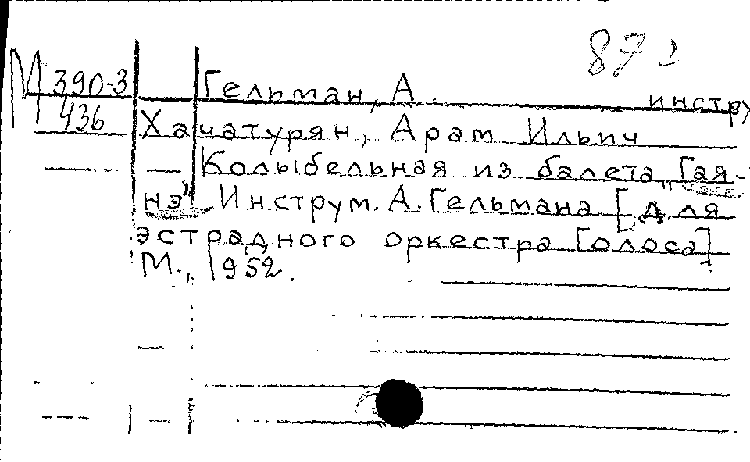 М 390-3
436
Гельман, А.
инстру
Хачатурян, Арам Ильич
Колыбельная из балета "Гая-
нэ". Инструм. А. Гельмана [для
эстрадного оркестра [олоса].
М., 1952.